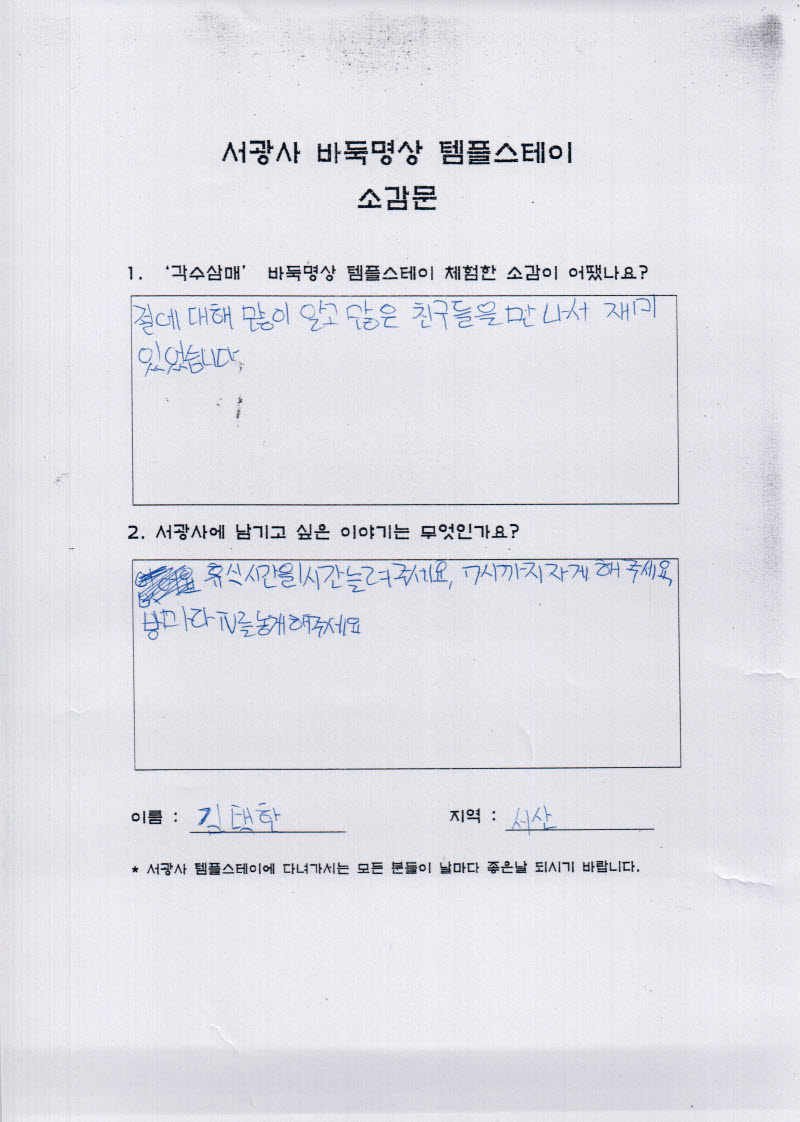 서광사 바둑명상 템플스테이
소감문
1. ‘각수삼매’ 바둑명상 템플스테이 체험한 소감이 어땠나요?
절에 대해 많이 알고 많은 친구들을 만나서 재미
있었습니다.
2. 서광사에 남기고 싶은 이야기는 무엇인가요?
휴식시간을 1시간 늘려주세요, 7시까지 자게 해 주세요,
방마다 TV를 놓게 해주세요
이름 : 김택환 지역 : 서산
* 서광사 템플스테이에 다녀가시는 모든 분들이 날마다 좋은날 되시기 바랍니다.